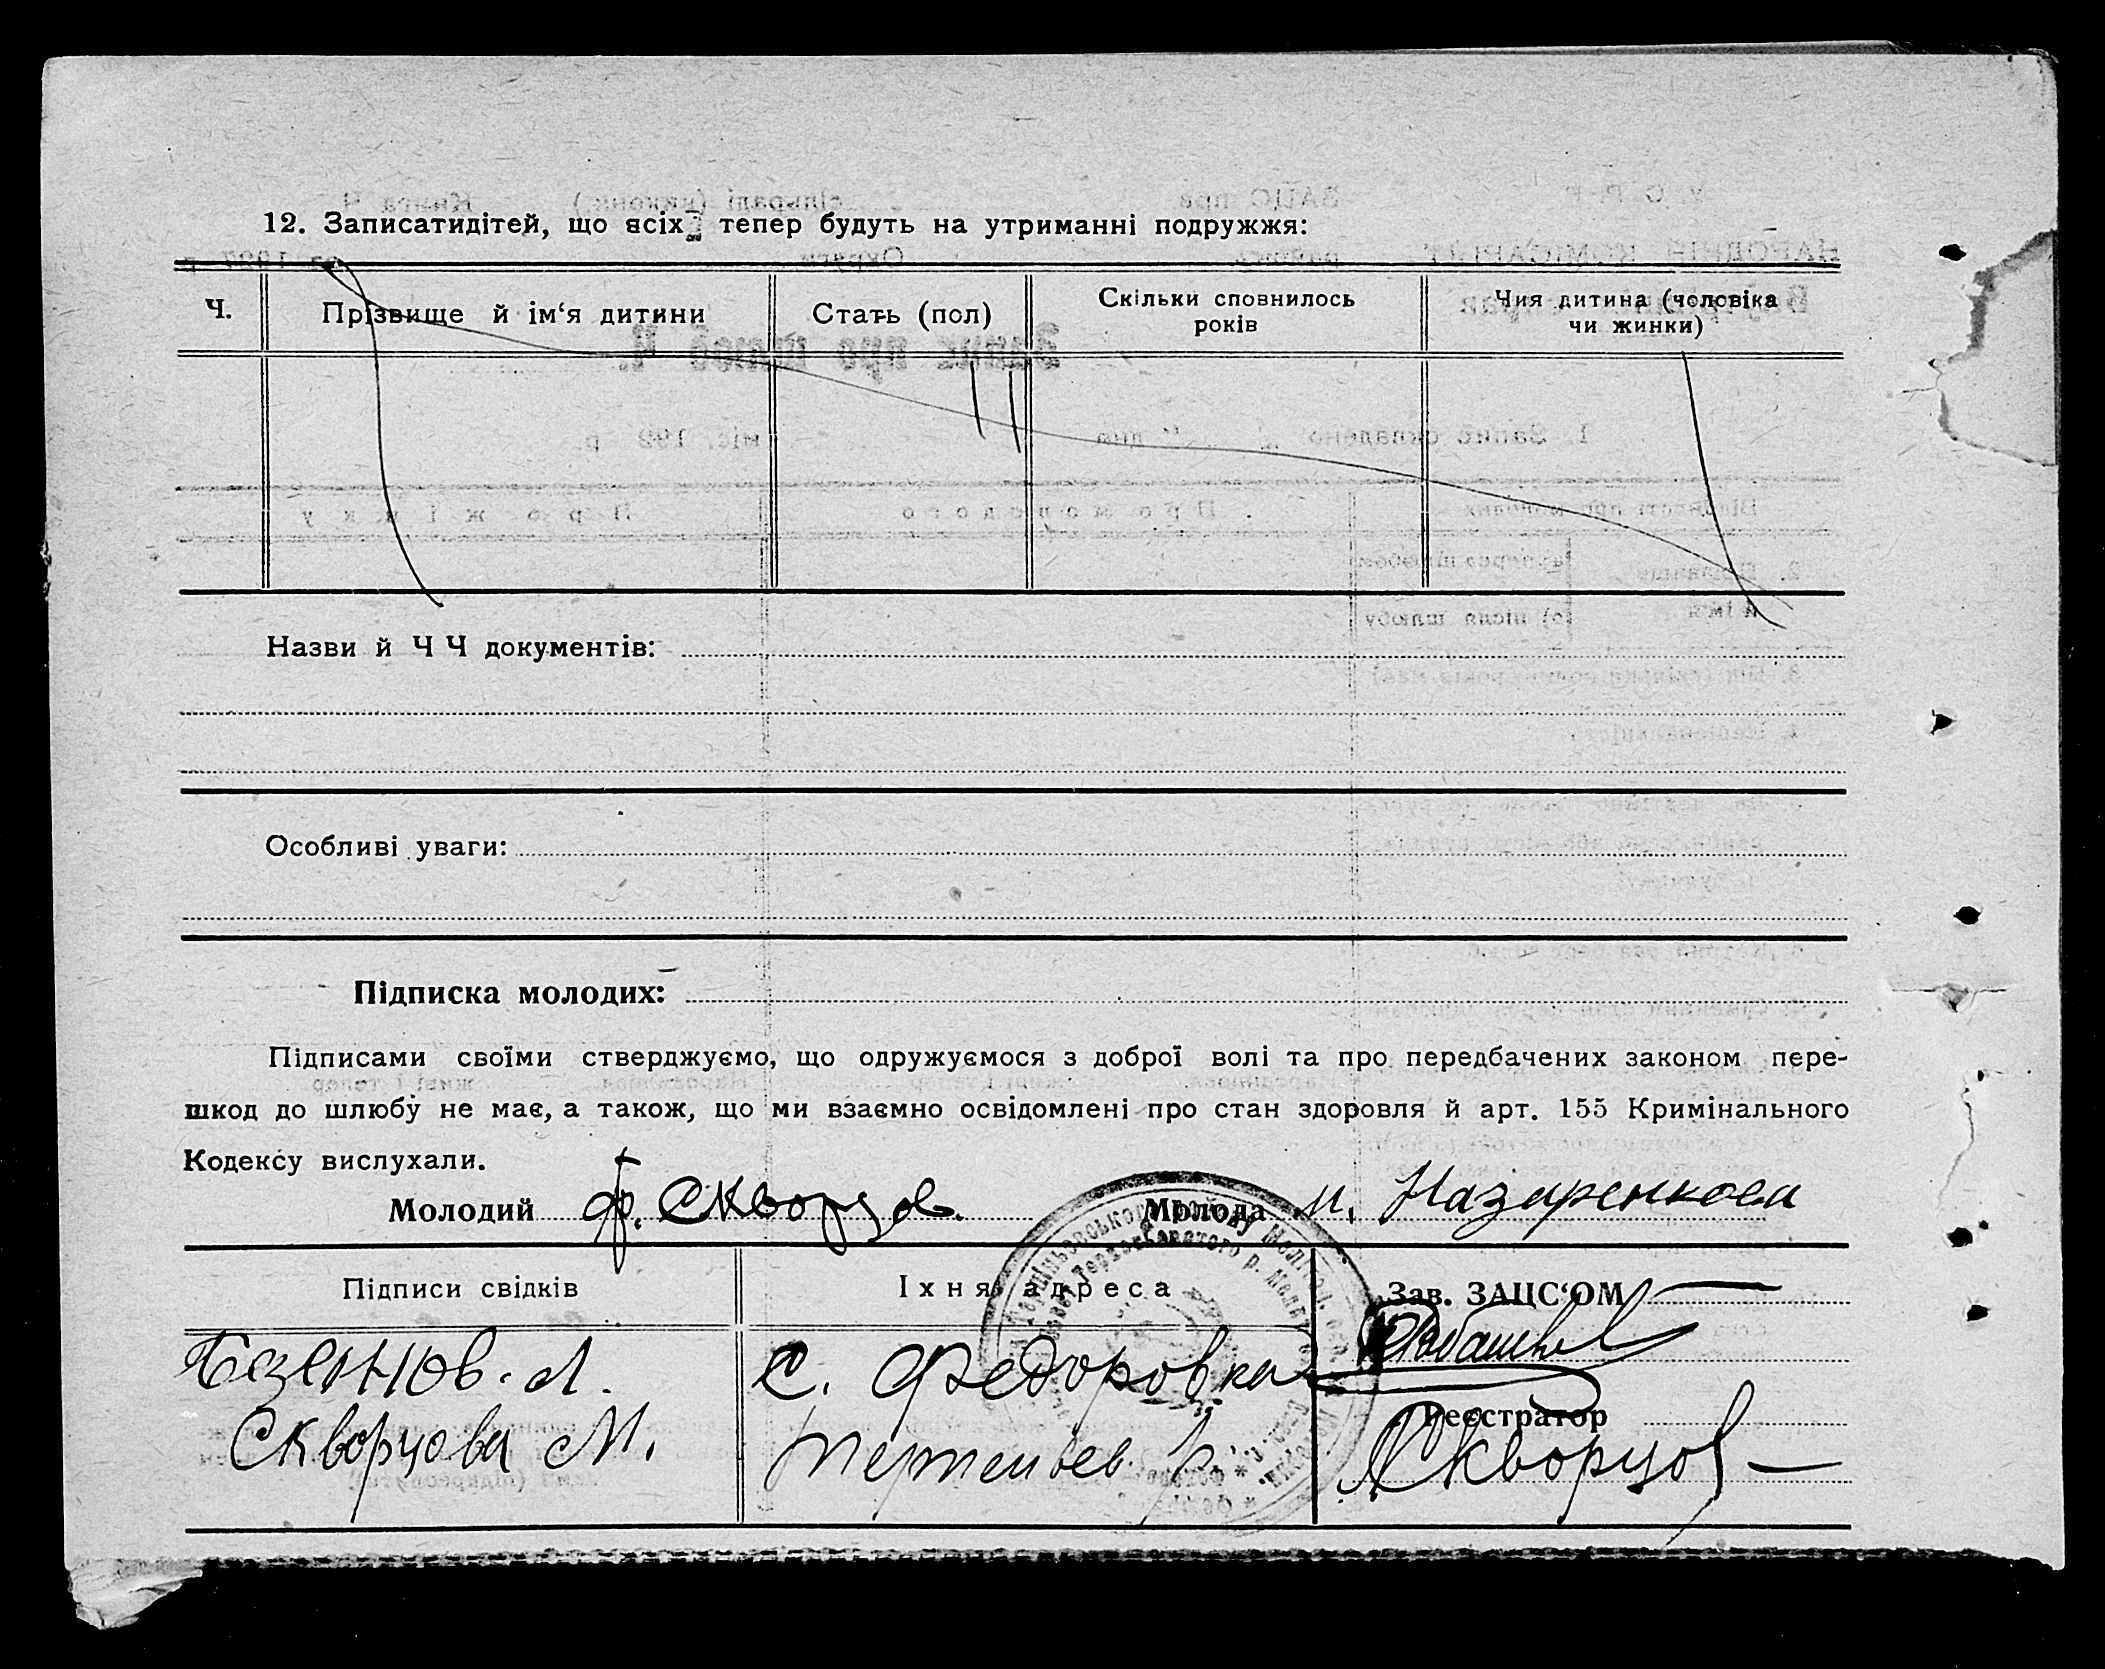 12. Записатидітей, що всіх тепер будуть на утриманні подружжя:
Ч.
Прізвище й ім‘я дитини
Стать (пол)
Скільки сповнилось
років
Чия дитина (чоловіка
чи жинки)
Назви й Ч Ч документів:
Особливі уваги:
Підписка молодих:
Підписами своїми стверджуємо, що одружуємося з доброї волі та про передбачених законом пере-
шкод до шлюбу не має, а також, що ми взаємно освідомлені про стан здоровля й арт. 155 Кримінального
Кодексу вислухали.
Молодий ф. Скворцов. Молода м. Назаренкова
Підписи свідків
Іхня адреса
Зав. ЗАЦС‘ОМ
С. Федоровка
Реєстратор
Скворцова М.
Скворцов